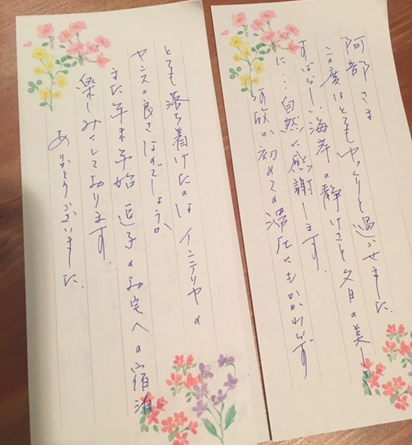 阿部さま
この度はとてもゆっくりと過ごせました。
すばらしい海岸の静けさと夕日の美しさ
に…自然に感謝します。
何故か初めての滞在にもかかわらず
とても落ち着けたのは インテリヤの
センスの良さなのでしょうか
また年末年始 逗子のお宅への宿泊
楽しみにしております。
ありがとうございました。